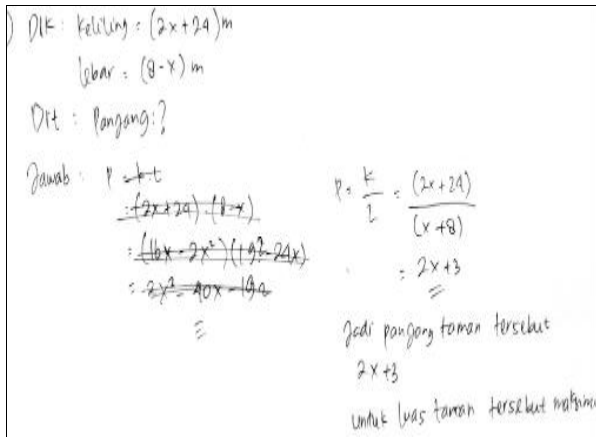 ) Dik : Keliling = (2x+24) m
lebar = (8-x) m
Dit : Panjang : ?
Jawab : P = k.l
= (2x+24) . (8-x)
= (16x - 2x²) (192 - 24x)
= 2x² - 40x - 192
=
P = k/l = (2x+24)/(x+8)
= 2x+3
Jadi panjang taman tersebut
2x+3
untuk luas taman tersebut